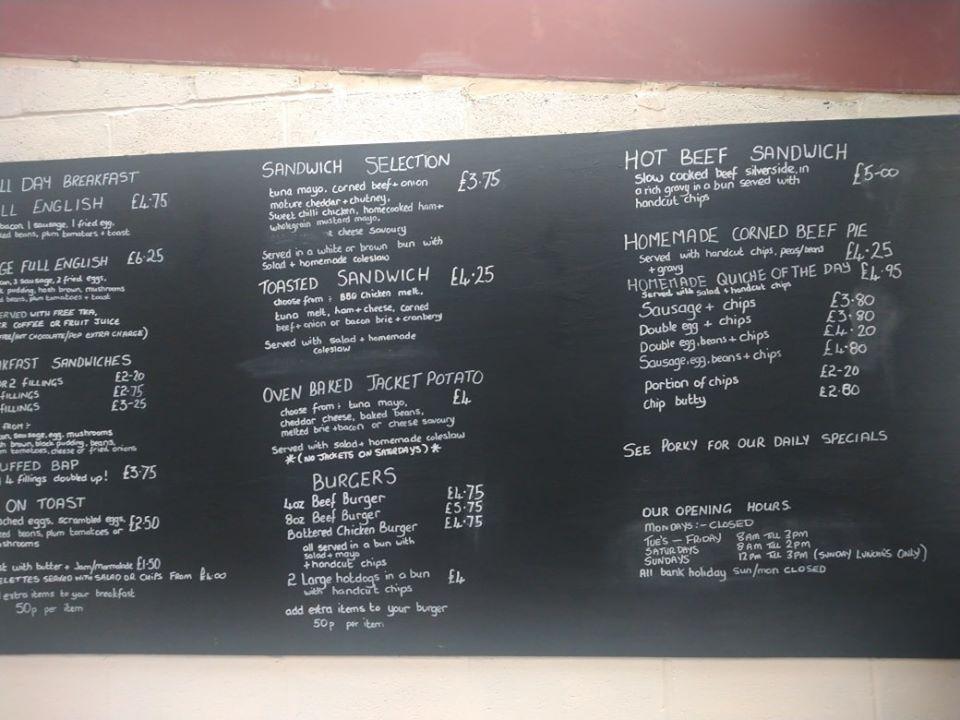 LL DAY BREAKFAST
LL ENGLISH £4.75
bacon, 1 sausage, 1 fried egg,
ed beans, plum tomatoes + toast
GE FULL ENGLISH £6.25
on, 3 sausage, 2 fried eggs,
k pudding, hash brown, mushrooms
d beans, plum tomatoes + toast
ERVED WITH FREE TEA,
ER COFFEE OR FRUIT JUICE
HOT CHOCOLATE/POP EXTRA CHARGE)
KFAST SANDWICHES
OR 2 FILLINGS £2-20
FILLINGS £2-75
FILLINGS £3-25
FROM :-
on, sausage, egg, mushrooms
h brown, black pudding, beans,
m tomatoes, cheese or fried onions
UFFED BAP
4 fillings doubled up! £3.75
ON TOAST
ched eggs, scrambled eggs, £2.50
ed beans, plum tomatoes or
shrooms
st with butter + Jam/marmalade £1.50
ELETTES SERVED WITH SALAD OR CHIPS FROM £4.00
extra items to your breakfast
50p per item
SANDWICH SELECTION
tuna mayo, corned beef + onion £3.75
mature cheddar + chutney,
Sweet chilli chicken, homecooked ham +
wholegrain mustard mayo,
cheese savoury
Served in a white or brown bun with
salad + homemade coleslaw
TOASTED SANDWICH £4.25
choose from :- BBQ Chicken melt,
tuna melt, ham + cheese, corned
beef + onion or bacon brie + cranberry
Served with salad + homemade
coleslaw
OVEN BAKED JACKET POTATO
choose from :- tuna mayo, £4
cheddar cheese, baked beans,
melted brie + bacon or cheese savoury
Served with salad + homemade coleslaw
*(NO JACKETS ON SATURDAYS)*
BURGERS
4oz Beef Burger £4.75
8oz Beef Burger £5.75
Battered Chicken Burger £4.75
all served in a bun with
salad + mayo
+ handcut chips
2 Large hotdogs in a bun £4
with handcut chips
add extra items to your burger
50p per item
HOT BEEF SANDWICH
Slow cooked beef silverside, in £5-00
a rich gravy in a bun served with
handcut chips
HOMEMADE CORNED BEEF PIE
Served with handcut chips, peas/beans £4.25
+ gravy
HOMEMADE QUICHE OF THE DAY £4.95
Served with salad + handcut chips
Sausage + chips £3.80
Double egg + chips £3.80
Double egg, beans + chips £4.20
Sausage, egg, beans + chips £4.80
Portion of chips £2-20
Chip butty £2.80
SEE PORKY FOR OUR DAILY SPECIALS
OUR OPENING HOURS
MONDAYS :- CLOSED
TUE'S — FRIDAY 8AM TILL 3PM
SATURDAYS 8AM TILL 2PM
SUNDAYS 12PM TILL 3PM (SUNDAY LUNCHES ONLY)
All bank holiday sun/mon CLOSED